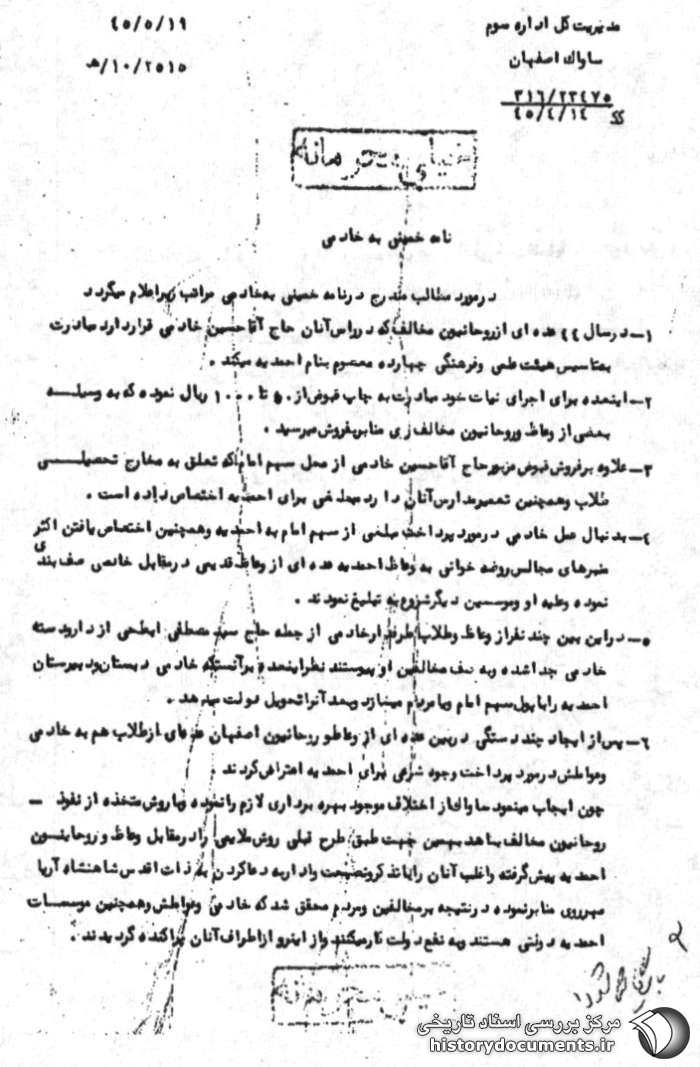 مدیریت کل اداره سوم
ساواک اصفهان
۳۱۶/۲۳۴۷۵
۴۵/۴/۱۴
۴۵/۵/۱۹
۲۵۱۵/۱۰/هـ
خیلی محرمانه
نامه خمینی به خادمی
در مورد مطالب مندرج در نامه خمینی به خادمی مراتب زیر اعلام میگردد
۱- در سال ۴۴ عده ای از روحانیون مخالف که در راس آنان حاج آقا حسین خادمی قرار دارد مبادرت
بتاسیس هیئت علمی و فرهنگی چهارده معصوم بنام احمدیه میکند .
۲- اینعده برای اجرای نیات خود مبادرت به چاپ قبوض از ۵۰ تا ۱۰۰۰ ریال نموده که به وسیله
بعضی از وعاظ و روحانیون مخالف روی منابر بفروش میرسید .
۳- علاوه بر فروش قبوض مزبور حاج آقا حسین خادمی از محل سهم امام که تعلق به مخارج تحصیلی
طلاب و همچنین تعمیر مدارس آنان دارد مبلغی برای احمدیه اختصاص داده است .
۴- بدنبال عمل خادمی در مورد پرداخت مبلغی از سهم امام به احمدیه و همچنین اختصاص یافتن اکثر
منبرهای مجالس روضه خوانی به وعاظ احمدیه عده ای از وعاظ قدیمی در مقابل خادمی صف بندی
نموده و علیه او و موسسین دیگر شروع به تبلیغ نمودند .
۵- در این بین چند نفر از وعاظ و طلاب طرفدار خادمی از جمله حاج سید مصطفی ابطحی از دارودسته
خادمی جدا شده و به صف مخالفین او پیوستند نظر اینعده بر آنستکه خادمی دبستان و دبیرستان
احمدیه را با پول سهم امام و یا مردم میسازد و بعد آنرا تحویل دولت میدهد .
۶- پس از ایجاد چند دستگی در بین عده ای از وعاظ و روحانیون اصفهان عده ای از طلاب هم به خادمی
و عواملش در مورد پرداخت وجوه شرعی برای احمدیه اعتراض کردند .
چون ایجاب مینمود ساواک از اختلاف موجود بهره برداری لازم را نموده و با روش متخذه از نفوذ -
روحانیون مخالف بکاهد بهمین جهت طبق طرح قبلی روش ملایمی را در مقابل وعاظ و روحانیون
احمدیه پیش گرفته و اغلب آنان را با تذکر و نصیحت وادار به دعا کردن به ذات اقدس شاهنشاه آریا
مهر روی منابر نموده در نتیجه بر مخالفین و مردم محقق شد که خادمی و عواملش و همچنین موسسات
احمدیه دولتی هستند و به نفع دولت کار میکنند و از اینرو از اطراف آنان پراکنده گردیدند .
مرکز بررسی اسناد تاریخی
historydocuments.ir